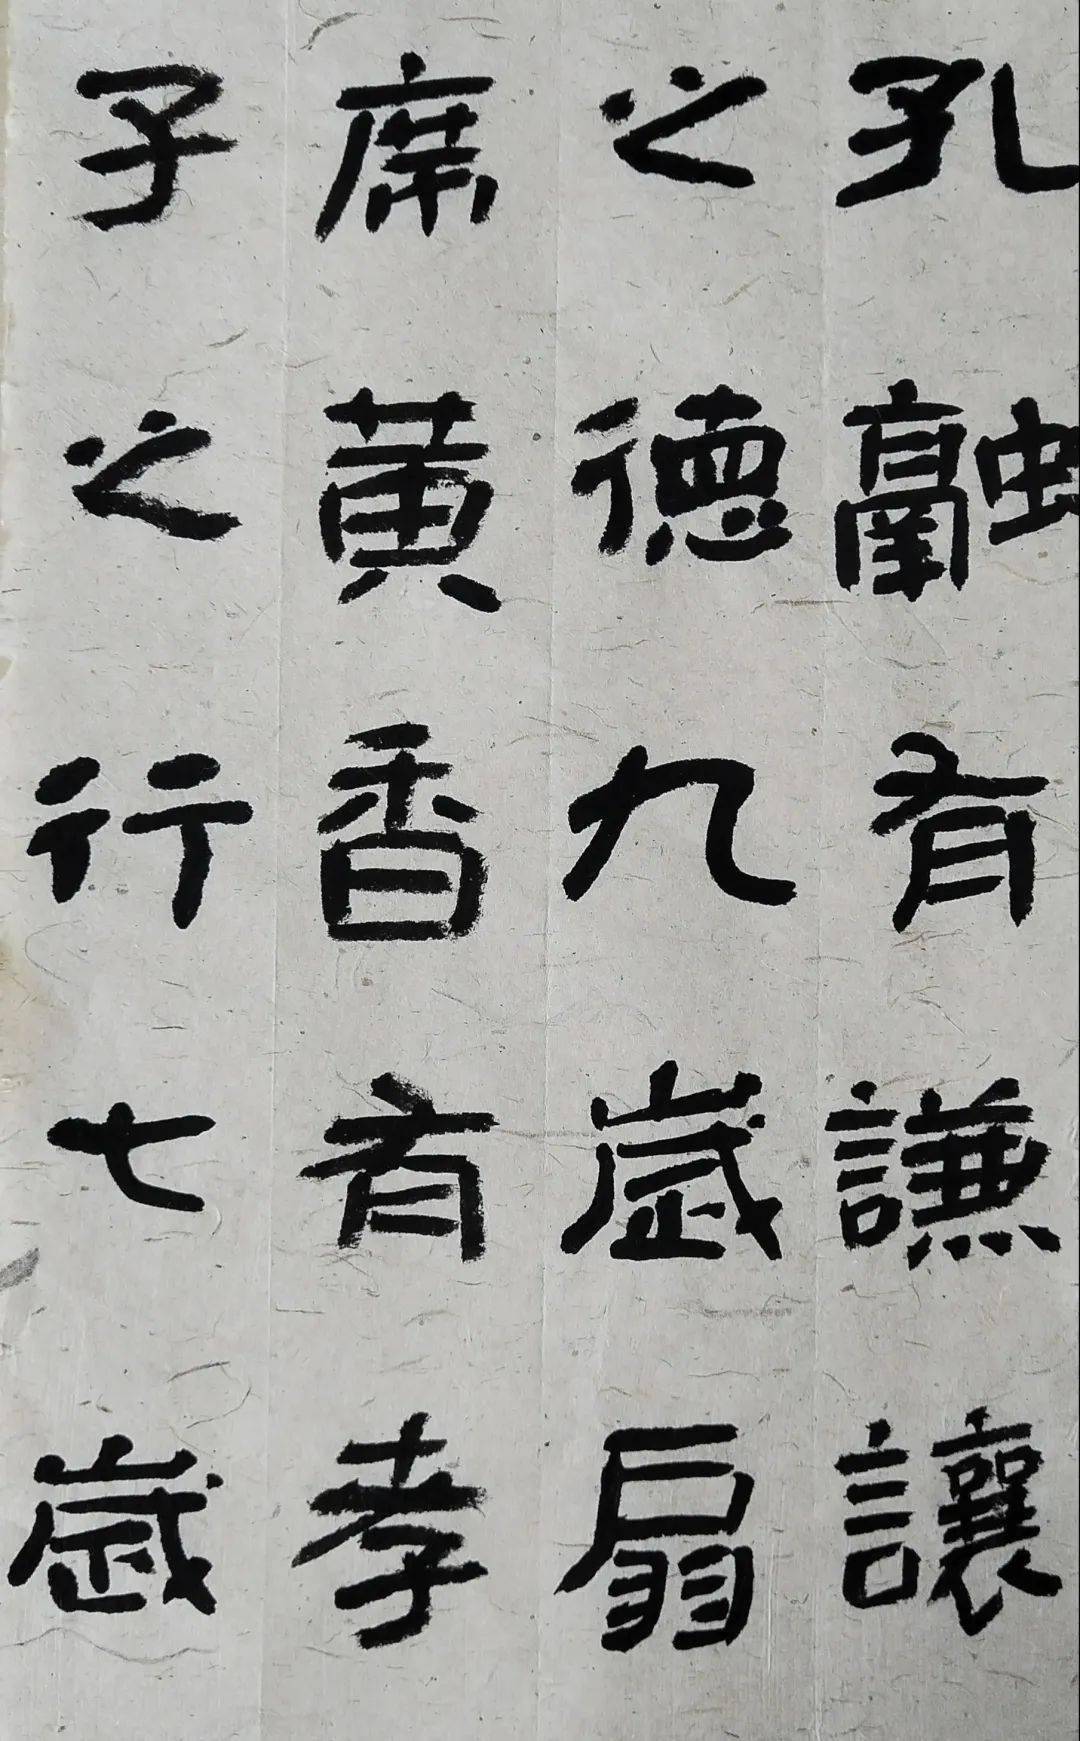 孔融有謙讓
之德九歲扇
席黃香有孝
子之行七歲